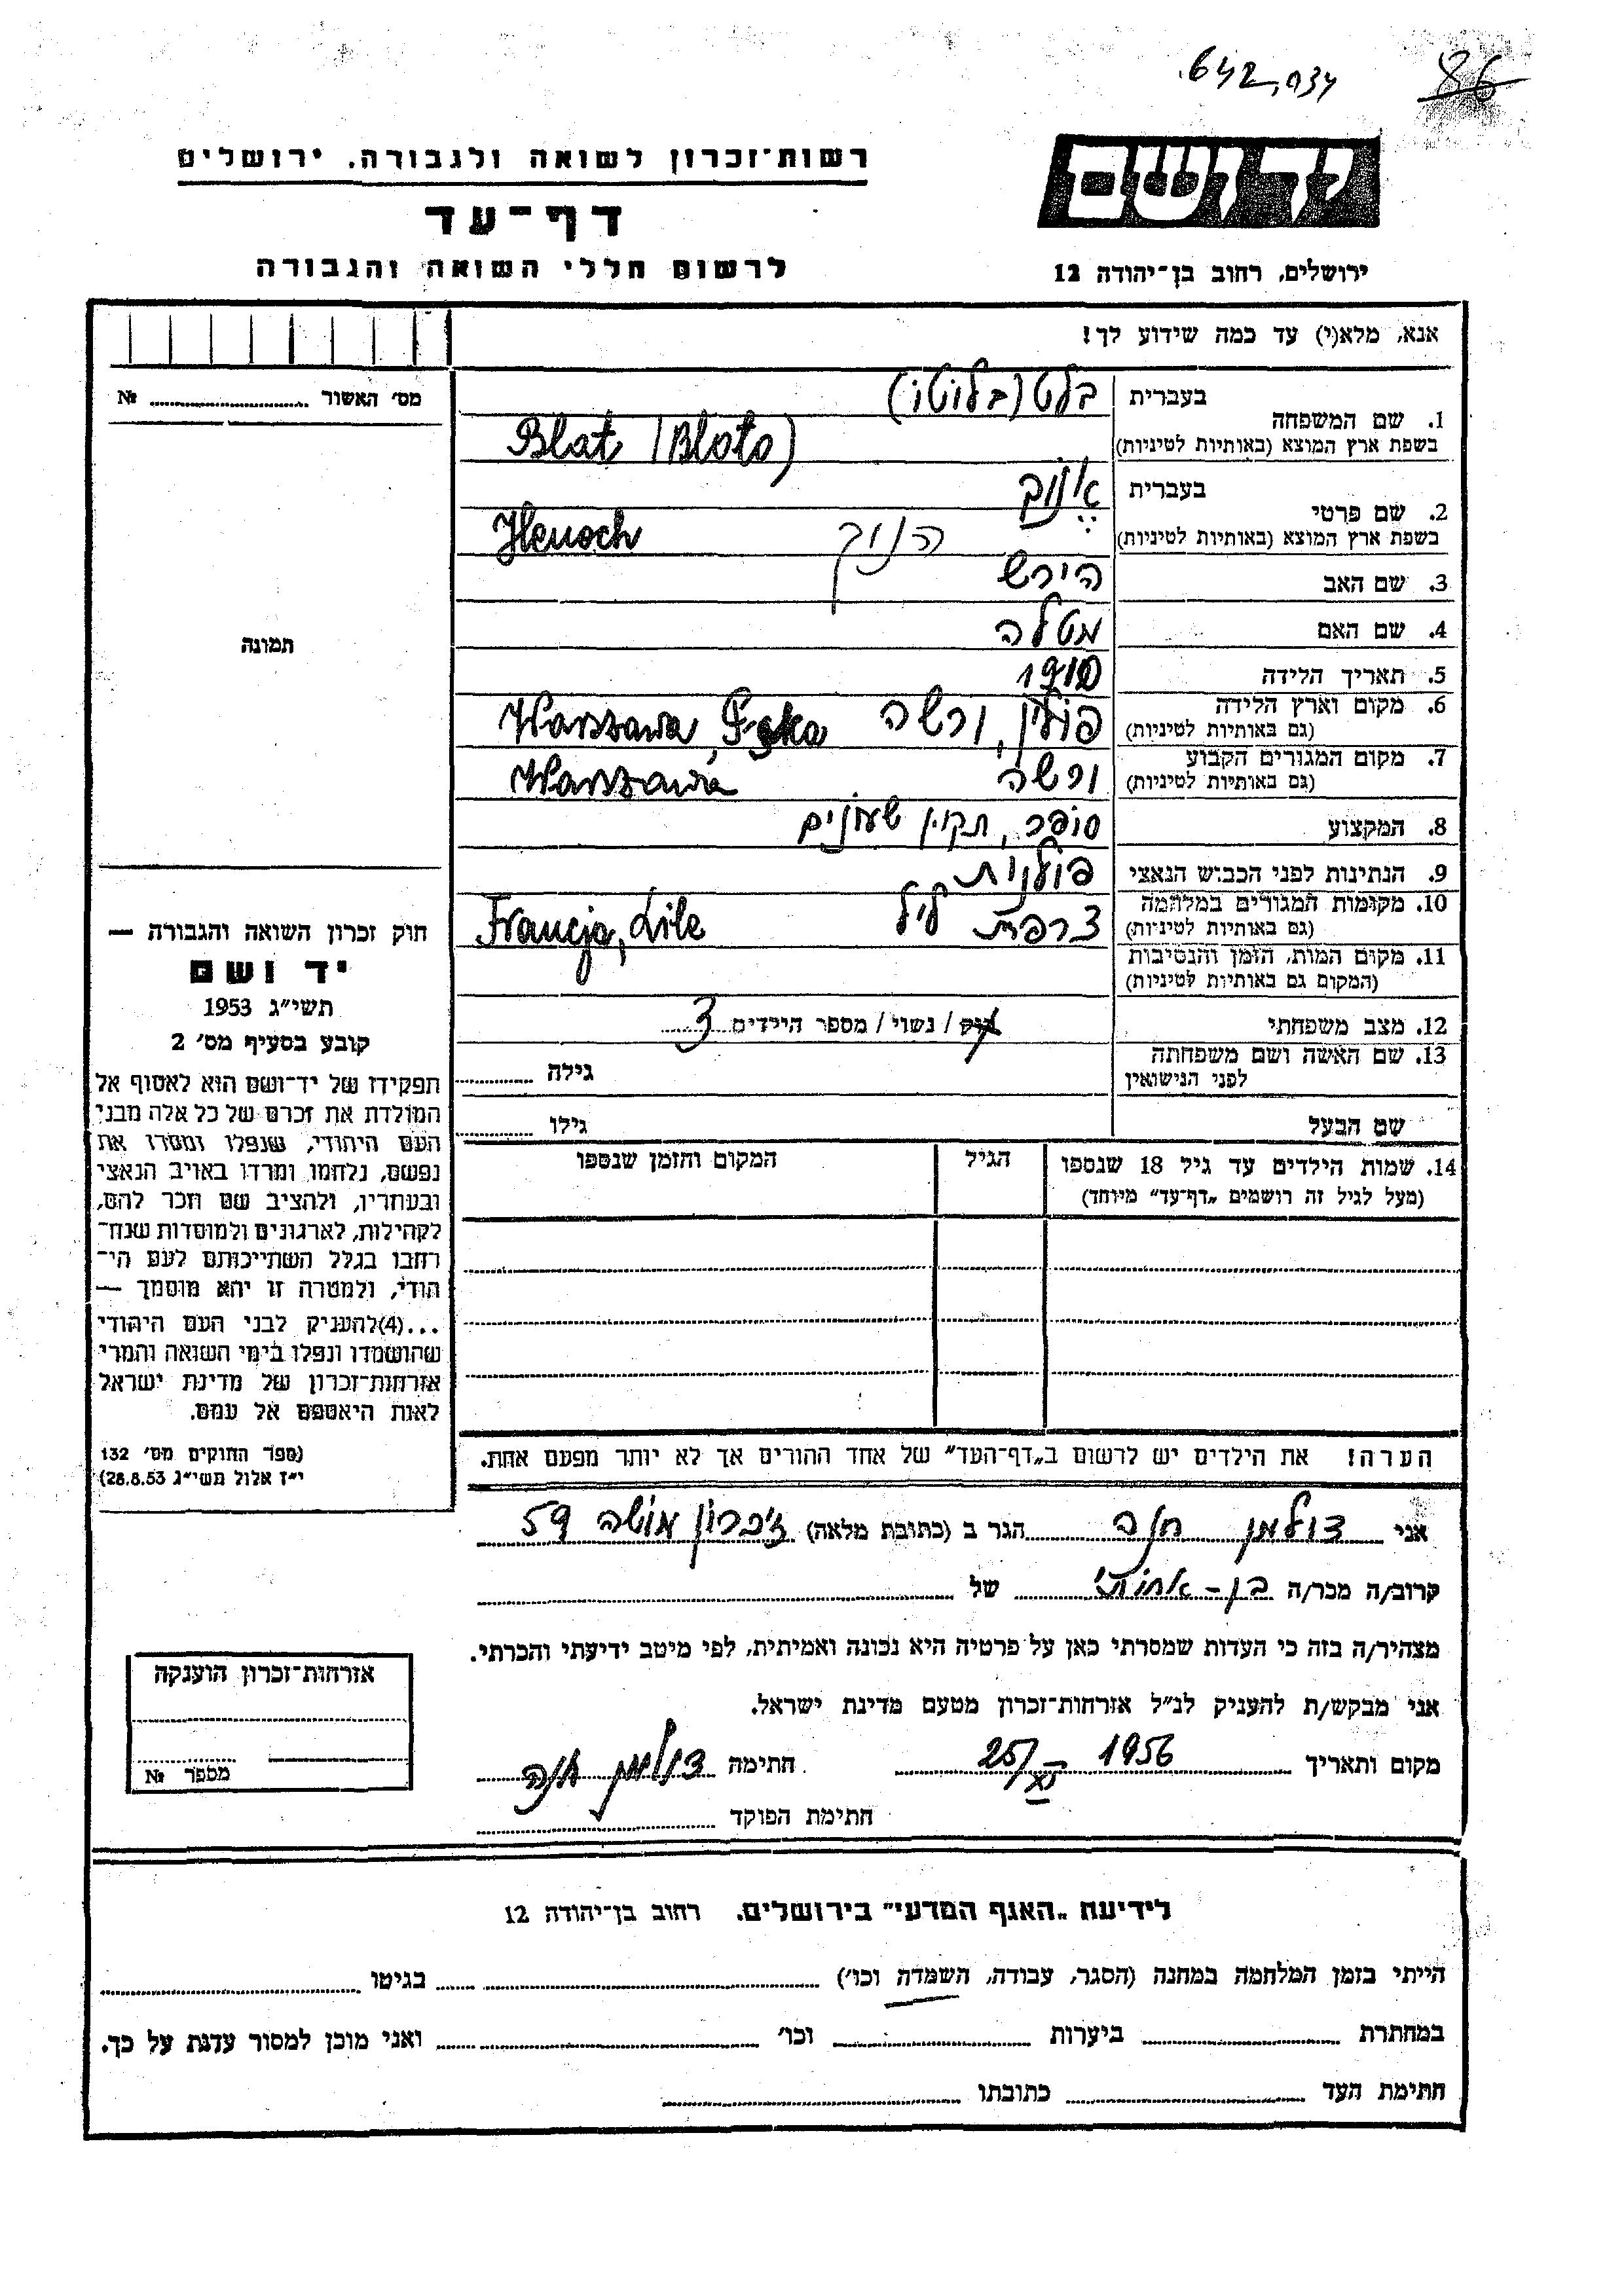 642,034.
86
רשות־זכרון לשואה ולגבורה. ירושלים
יד ושם
דף־עד
לרשום חללי השואה והגבורה
ירושלים, רחוב בן־יהודה 12
אנא, מלא(י) עד כמה שידוע לך!
מס׳ האשור № 
1. שם המשפחה
בעברית בלט (בלוטו)
בשפת ארץ המוצא (באותיות לטיניות) Blat (Bloto)
2. שם פרטי
בעברית אנוך
בשפת ארץ המוצא (באותיות לטיניות) הנוך Henoch
3. שם האב הירש
4. שם האם מטלה
5. תאריך הלידה 1910
6. מקום וארץ הלידה פולין, ורשה Warszawa,
(גם באותיות לטיניות)
7. מקום המגורים הקבוע ורשה Warszawa
(גם באותיות לטיניות)
8. המקצוע סופר, תקון שעונים
9. הנתינות לפני הכבוש הנאצי פולנית
10. מקומות המגורים במלחמה צרפת ליל Francja, Lile
(גם באותיות לטיניות)
11. מקום המות, הזמן והנסיבות
(המקום גם באותיות לטיניות)
12. מצב משפחתי רוק / נשוי / מספר הילדים 3
13. שם האשה ושם משפחתה גילה
לפני הנישואין
שם הבעל גילו
14. שמות הילדים עד גיל 18 שנספו הגיל המקום והזמן שנספו
(מעל לגיל זה רושמים „דף־עד״ מיוחד)
הערה! את הילדים יש לרשום ב„דף־העד״ של אחד ההורים אך לא יותר מפעם אחת.
תמונה
חוק זכרון השואה והגבורה —
יד ושם
תשי״ג 1953
קובע בסעיף מס׳ 2
תפקידו של יד־ושם הוא לאסוף אל
המולדת את זכרם של כל אלה מבני
העם היהודי, שנפלו ומסרו את
נפשם, נלחמו ומרדו באויב הנאצי
ובעוזריו, ולהציב שם וזכר להם,
לקהילות, לארגונים ולמוסדות שנח־
רבו בגלל השתייכותם לעם הי־
הודי, ולמטרה זו יהא מוסמך —
...(4)להעניק לבני העם היהודי
שהושמדו ונפלו בימי השואה והמרי
אזרחות־זכרון של מדינת ישראל
לאות היאספם אל עמם.
(ספר החוקים מס׳ 132
י״ז אלול תשי״ג 28.8.53)
אני צולמן חנה הגר ב (כתובת מלאה) זיכרון מושה 59
קרוב/ה מכר/ה בן-אחותי של
מצהיר/ה בזה כי העדות שמסרתי כאן על פרטיה היא נכונה ואמיתית, לפי מיטב ידיעתי והכרתי.
אני מבקש/ת להעניק לנ״ל אזרחות־זכרון מטעם מדינת ישראל.
מקום ותאריך 1956 25/XI חתימה צולמן חנה
חתימת הפוקד
אזרחות־זכרון הוענקה
מספר №
לידיעת „האגף המדעי״ בירושלים. רחוב בן־יהודה 12
הייתי בזמן המלחמה במחנה (הסגר, עבודה, השמדה וכו׳) בגיטו
במחתרת ביערות וכו׳ ואני מוכן למסור עדות על כך.
חתימת העד כתובתו